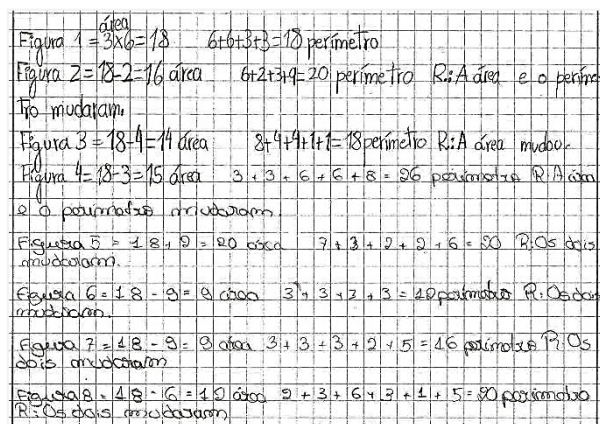 área
Figura 1 = 3x6 = 18 6+6+3+3=18 perímetro
Figura 2 = 18-2=16 área 6+2+3+9=20 perímetro R: A área e o períme
tro mudaram.
Figura 3 = 18-4=14 área 8+4+4+1+1=18 perímetro R: A área mudou.
Figura 4 = 18-3=15 área 3+3+6+6+8=26 perimetro R: A área
e o perimetro mudaram.
Figura 5 = 18+2=20 área 7+3+2+2+6=20 R: Os dois
mudaram.
Figura 6 = 18-9=9 área 3+3+3+3=12 perimetro R: Os dois
mudaram.
Figura 7 = 18-9=9 área 3+3+3+2+5=16 perimetro R: Os
dois mudaram
Figura 8 = 18-6=12 área 2+3+6+3+1+5=20 perimetro
R: Os dois mudaram